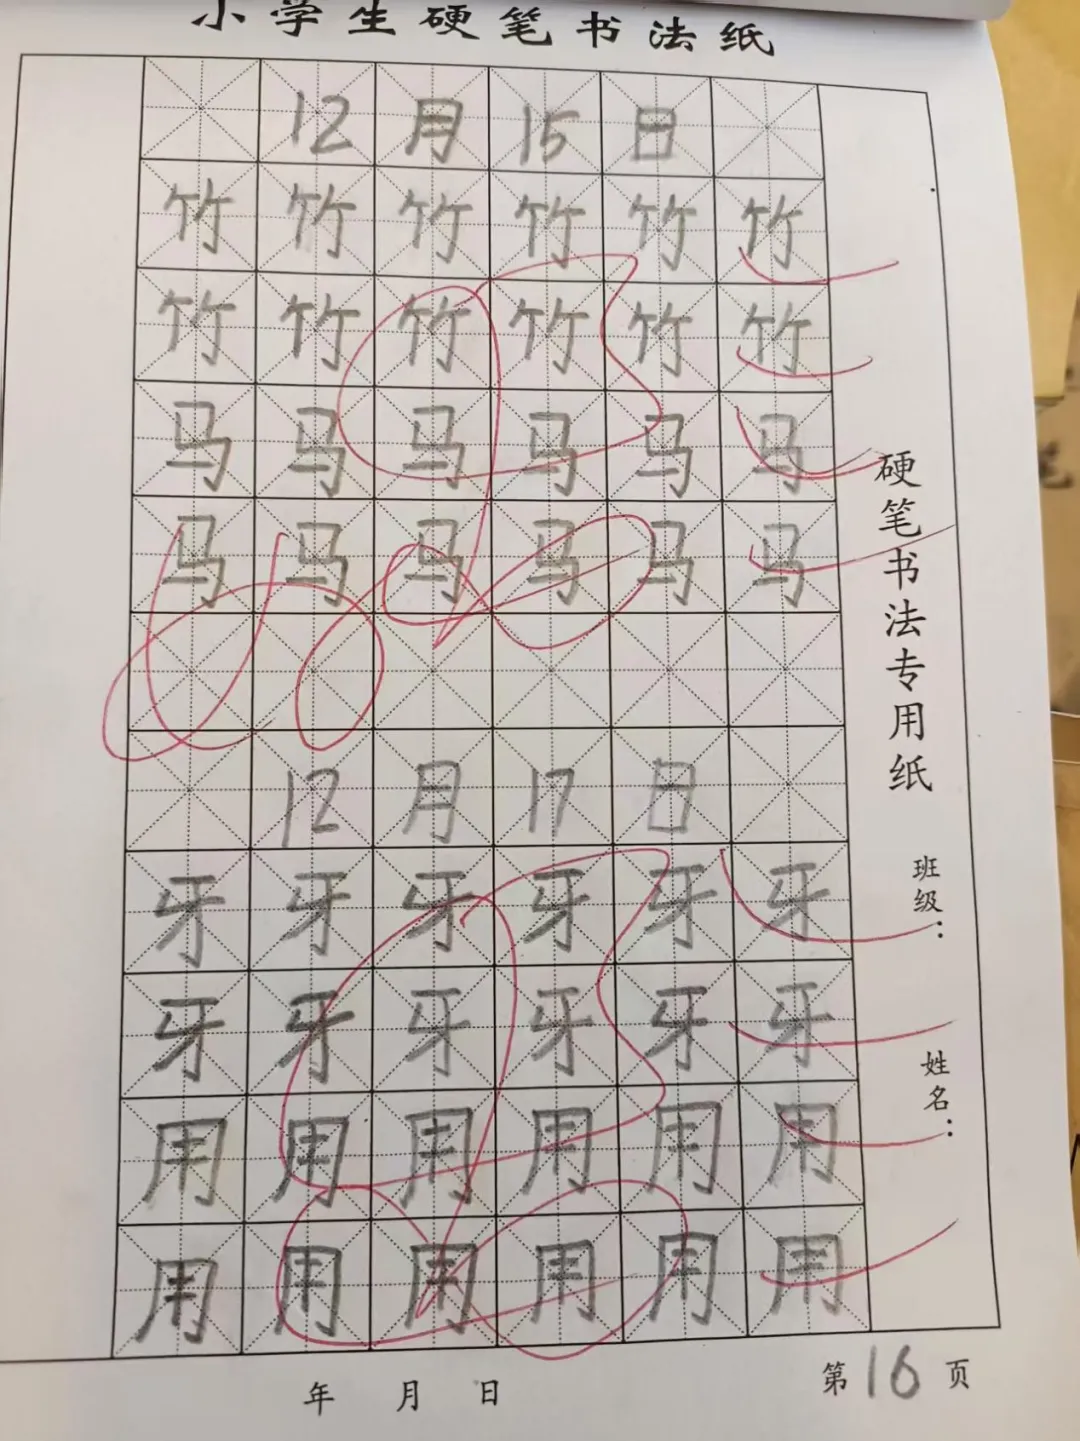 小学生硬笔书法纸
12月15日
竹竹竹竹竹竹
竹竹竹竹竹竹
马马马马马马
马马马马马马
12月17日
牙牙牙牙牙牙
牙牙牙牙牙牙
用用用用用用
用用用用用用
硬笔书法专用纸
班级：
姓名：
年 月 日
第16页